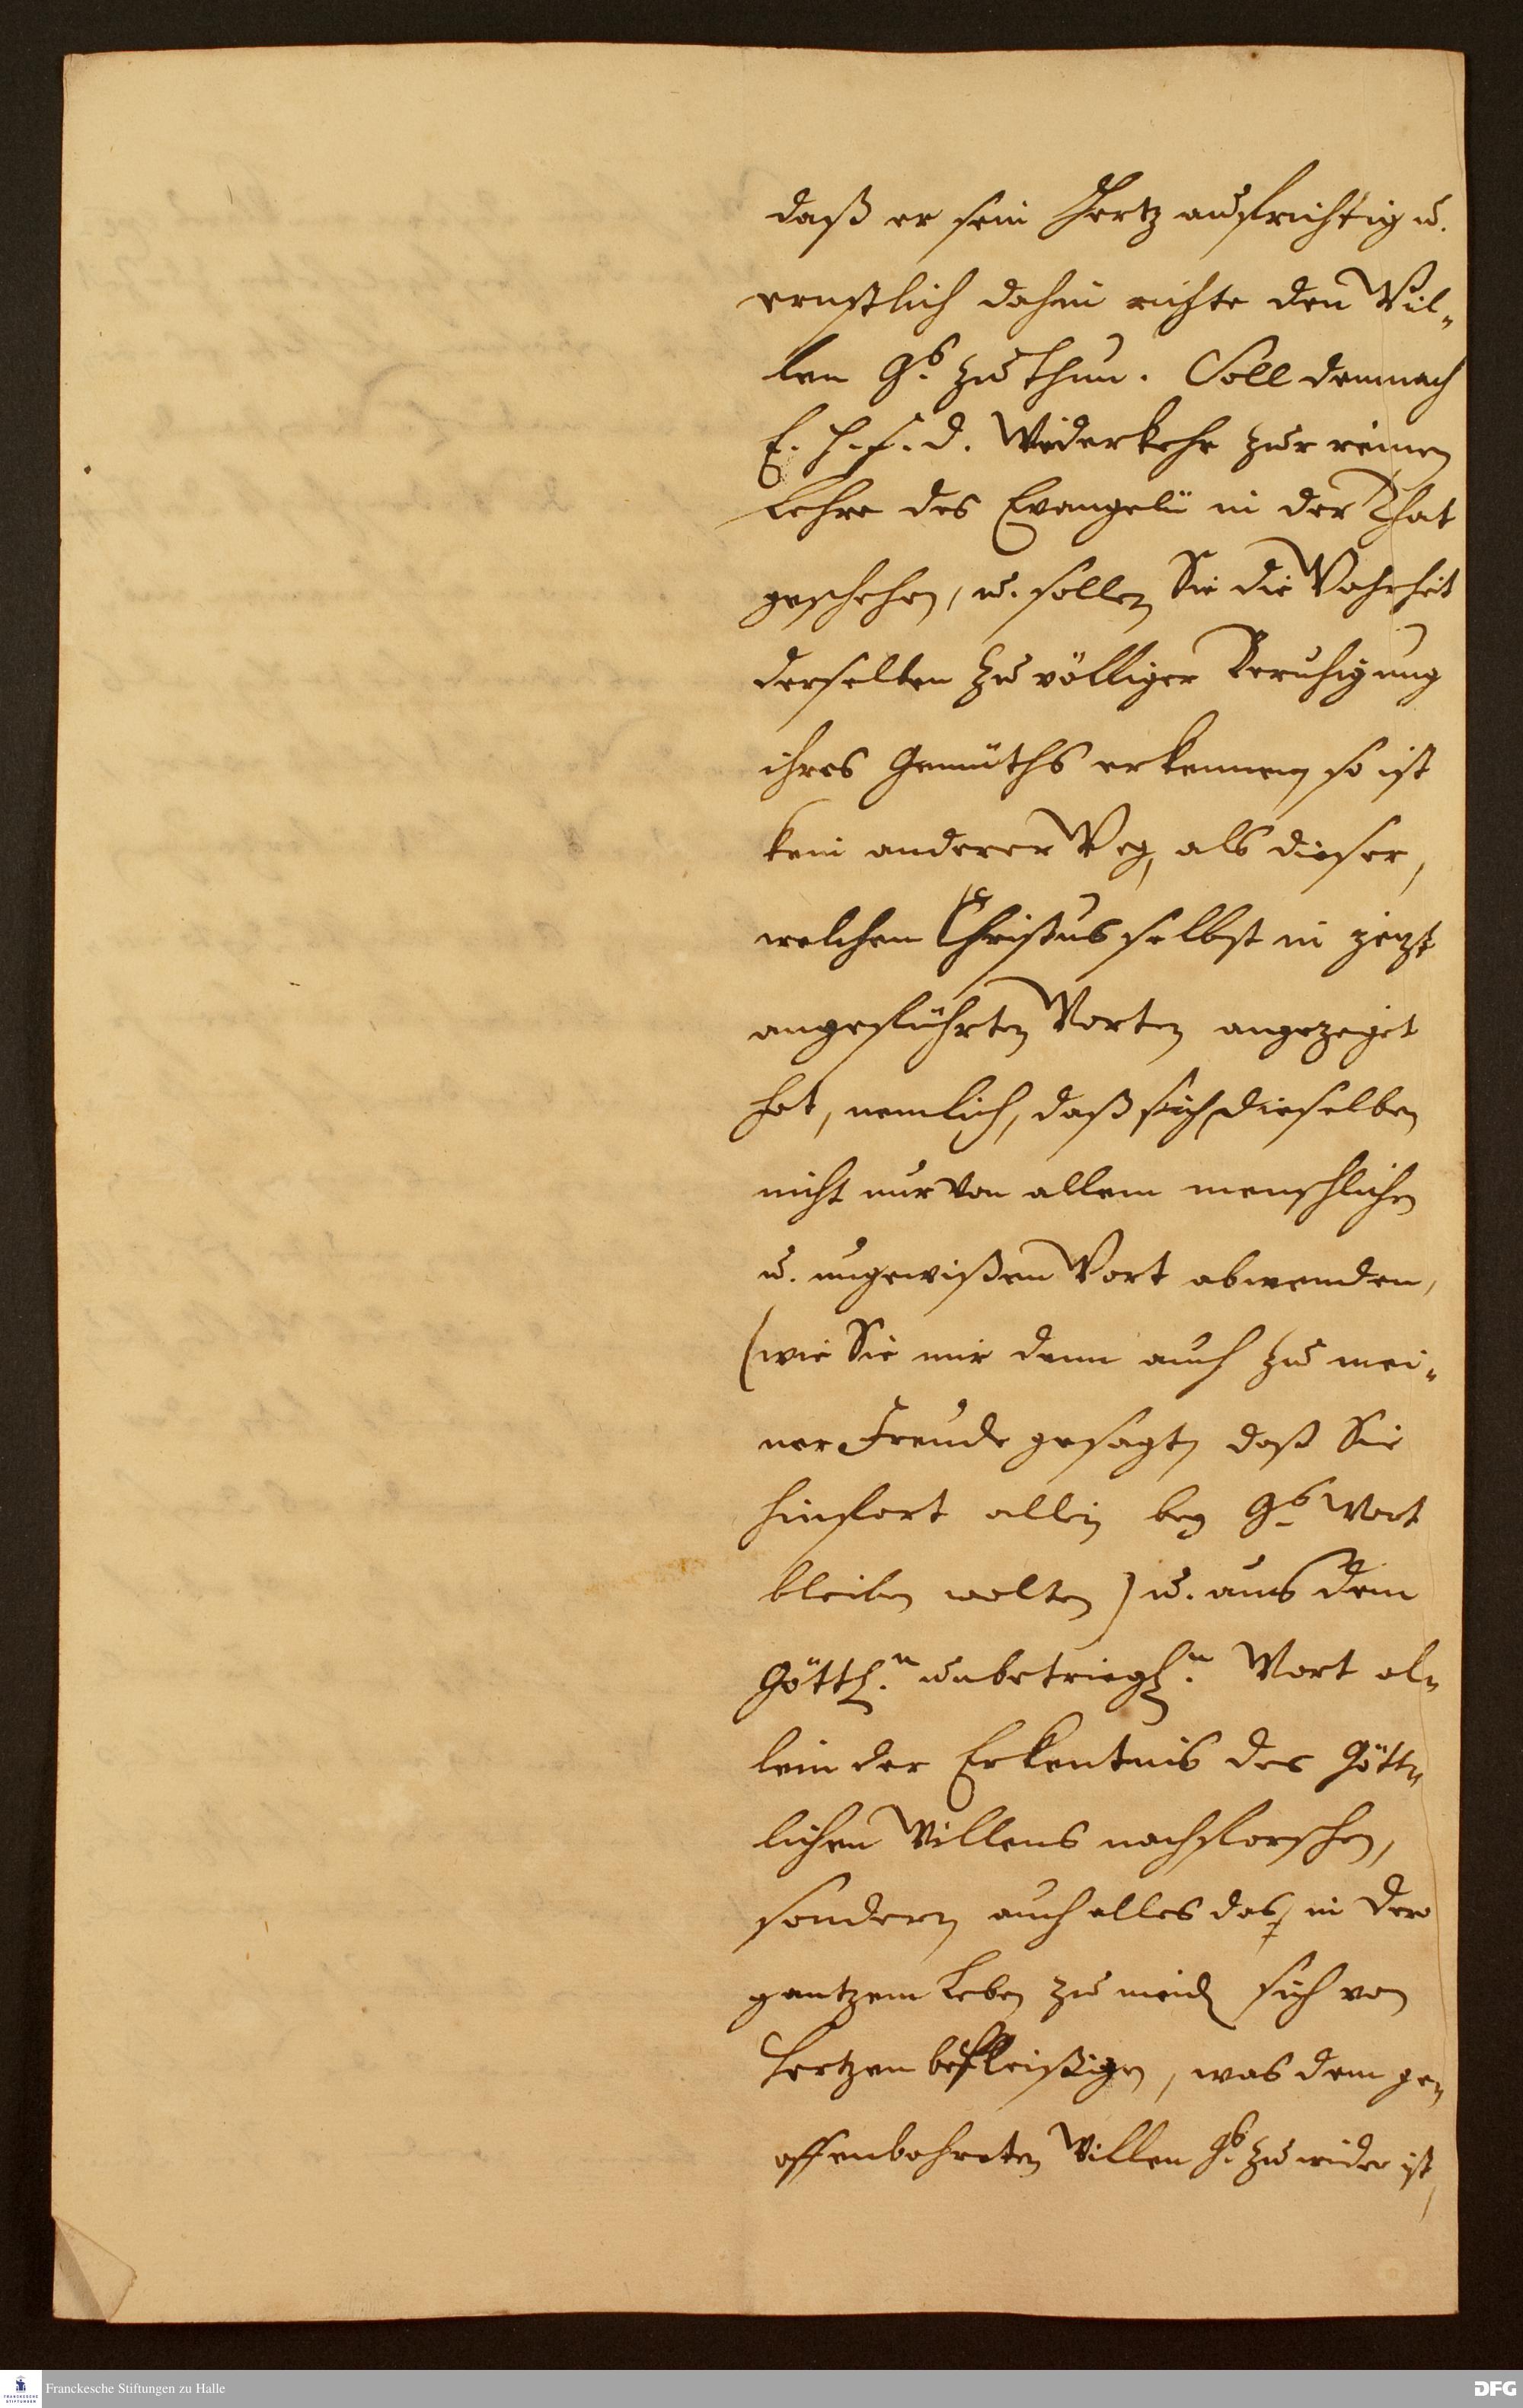 daß er sein Hertz aufrichtig u.
ernstlich dahin richte den Wil-
len G.s zu thun. Soll demnach
E. H. F. D. Widerkehr zur reinen
Lehre des Evangelii in der That
geschehen, u. sollen Sie die Wahrheit
derselben zu völliger Beruhigung
ihres Gemüths erkennen so ist
kein anderer Weg, als dieser,
welchen Christus selbst in jetzt
angeführten Worten angezeiget
hat, nemlich, daß sich dieselben
nicht nur von allem menschlichen
u. ungewißen Wort abwenden,
(wie Sie mir denn auch zu mei-
ner Freude gesagt, daß Sie
hinfort allein bey G.s Wort
bleiben wolten) u. aus dem
Göttl.n unbetriegl.n Wort al-
lein der Erkentnis des Gött-
lichen Willens nachforschen,
sondern auch alles das, in Dero
gantzem Leben zu meiden sich von
Hertzen befleißigen, was dem ge-
offenbahrten Willen G.s zu wider ist,
Franckesche Stiftungen zu Halle
DFG